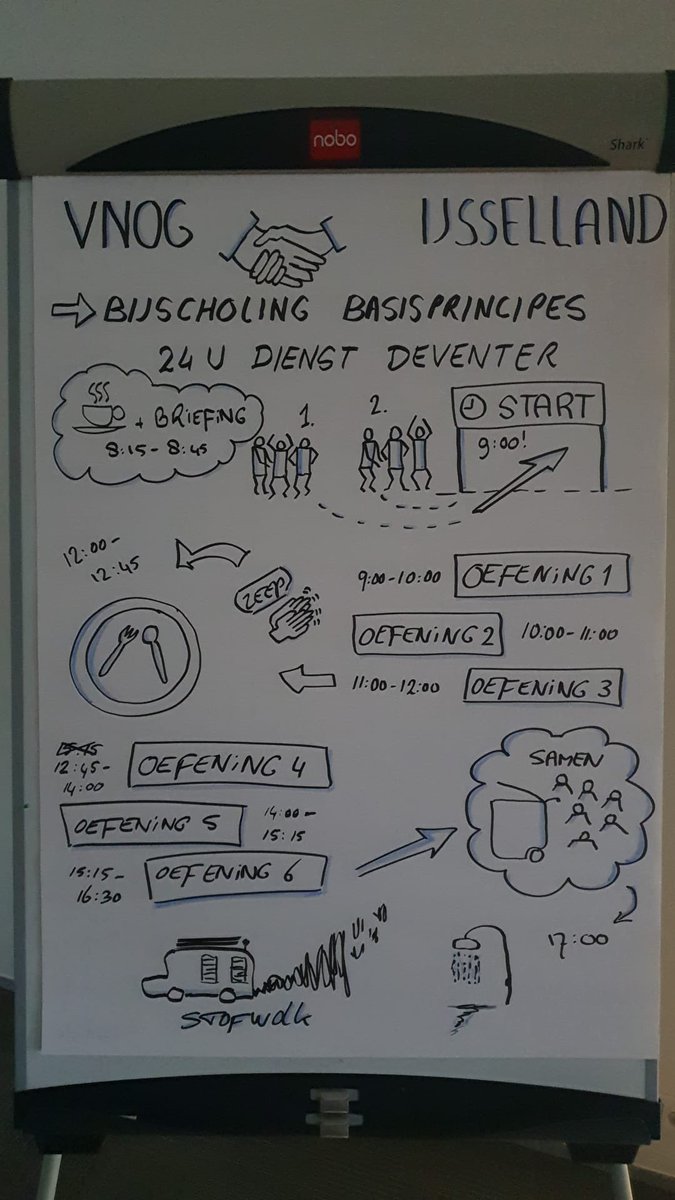 nobo
Shark
VNOG IJSSELLAND
BIJSCHOLING BASISPRINCIPES
24 U DIENST DEVENTER
+ BRIEFING
8:15 - 8:45
1.
2.
START
9:00!
12:00 -
12:45
ZEEP
9:00 - 10:00 OEFENING 1
OEFENING 2 10:00 - 11:00
11:00 - 12:00 OEFENING 3
12:45 -
14:00
OEFENING 4
OEFENING 5
14:00 -
15:15
15:15 -
16:30
OEFENING 6
SAMEN
17:00
STOFWOLK